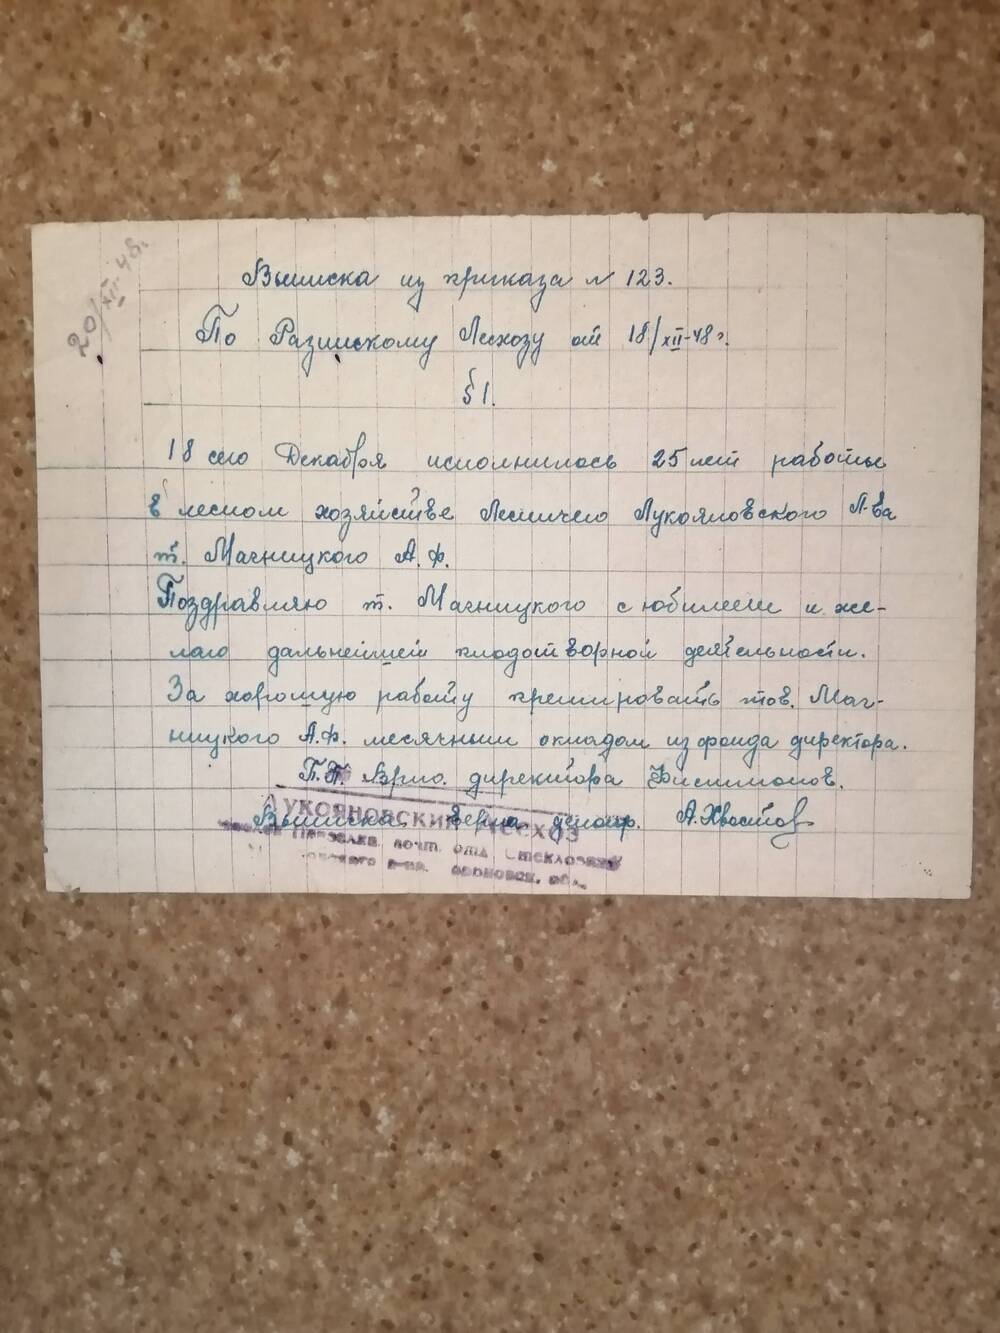 20/XII-48г.
Выписка из приказа № 123.
По Разинскому Лесхозу от 18/XII-48г.
§1.
18 сего Декабря исполнилось 25 лет работы
в лесном хозяйстве Лесничего Лукояновского Л-ва
т. Магницкого А.Ф.
Поздравляю т. Магницкого с юбилеем и же-
лаю дальнейшей плодотворной деятельности.
За хорошую работу премировать тов. Маг-
ницкого А.Ф. месячным окладом из фонда директора.
П.П. Врио. директора Филимонов.
Выписка верна А.Хвостов
ЛУКОЯНОВСКИЙ ЛЕСХОЗ
почт. отд.